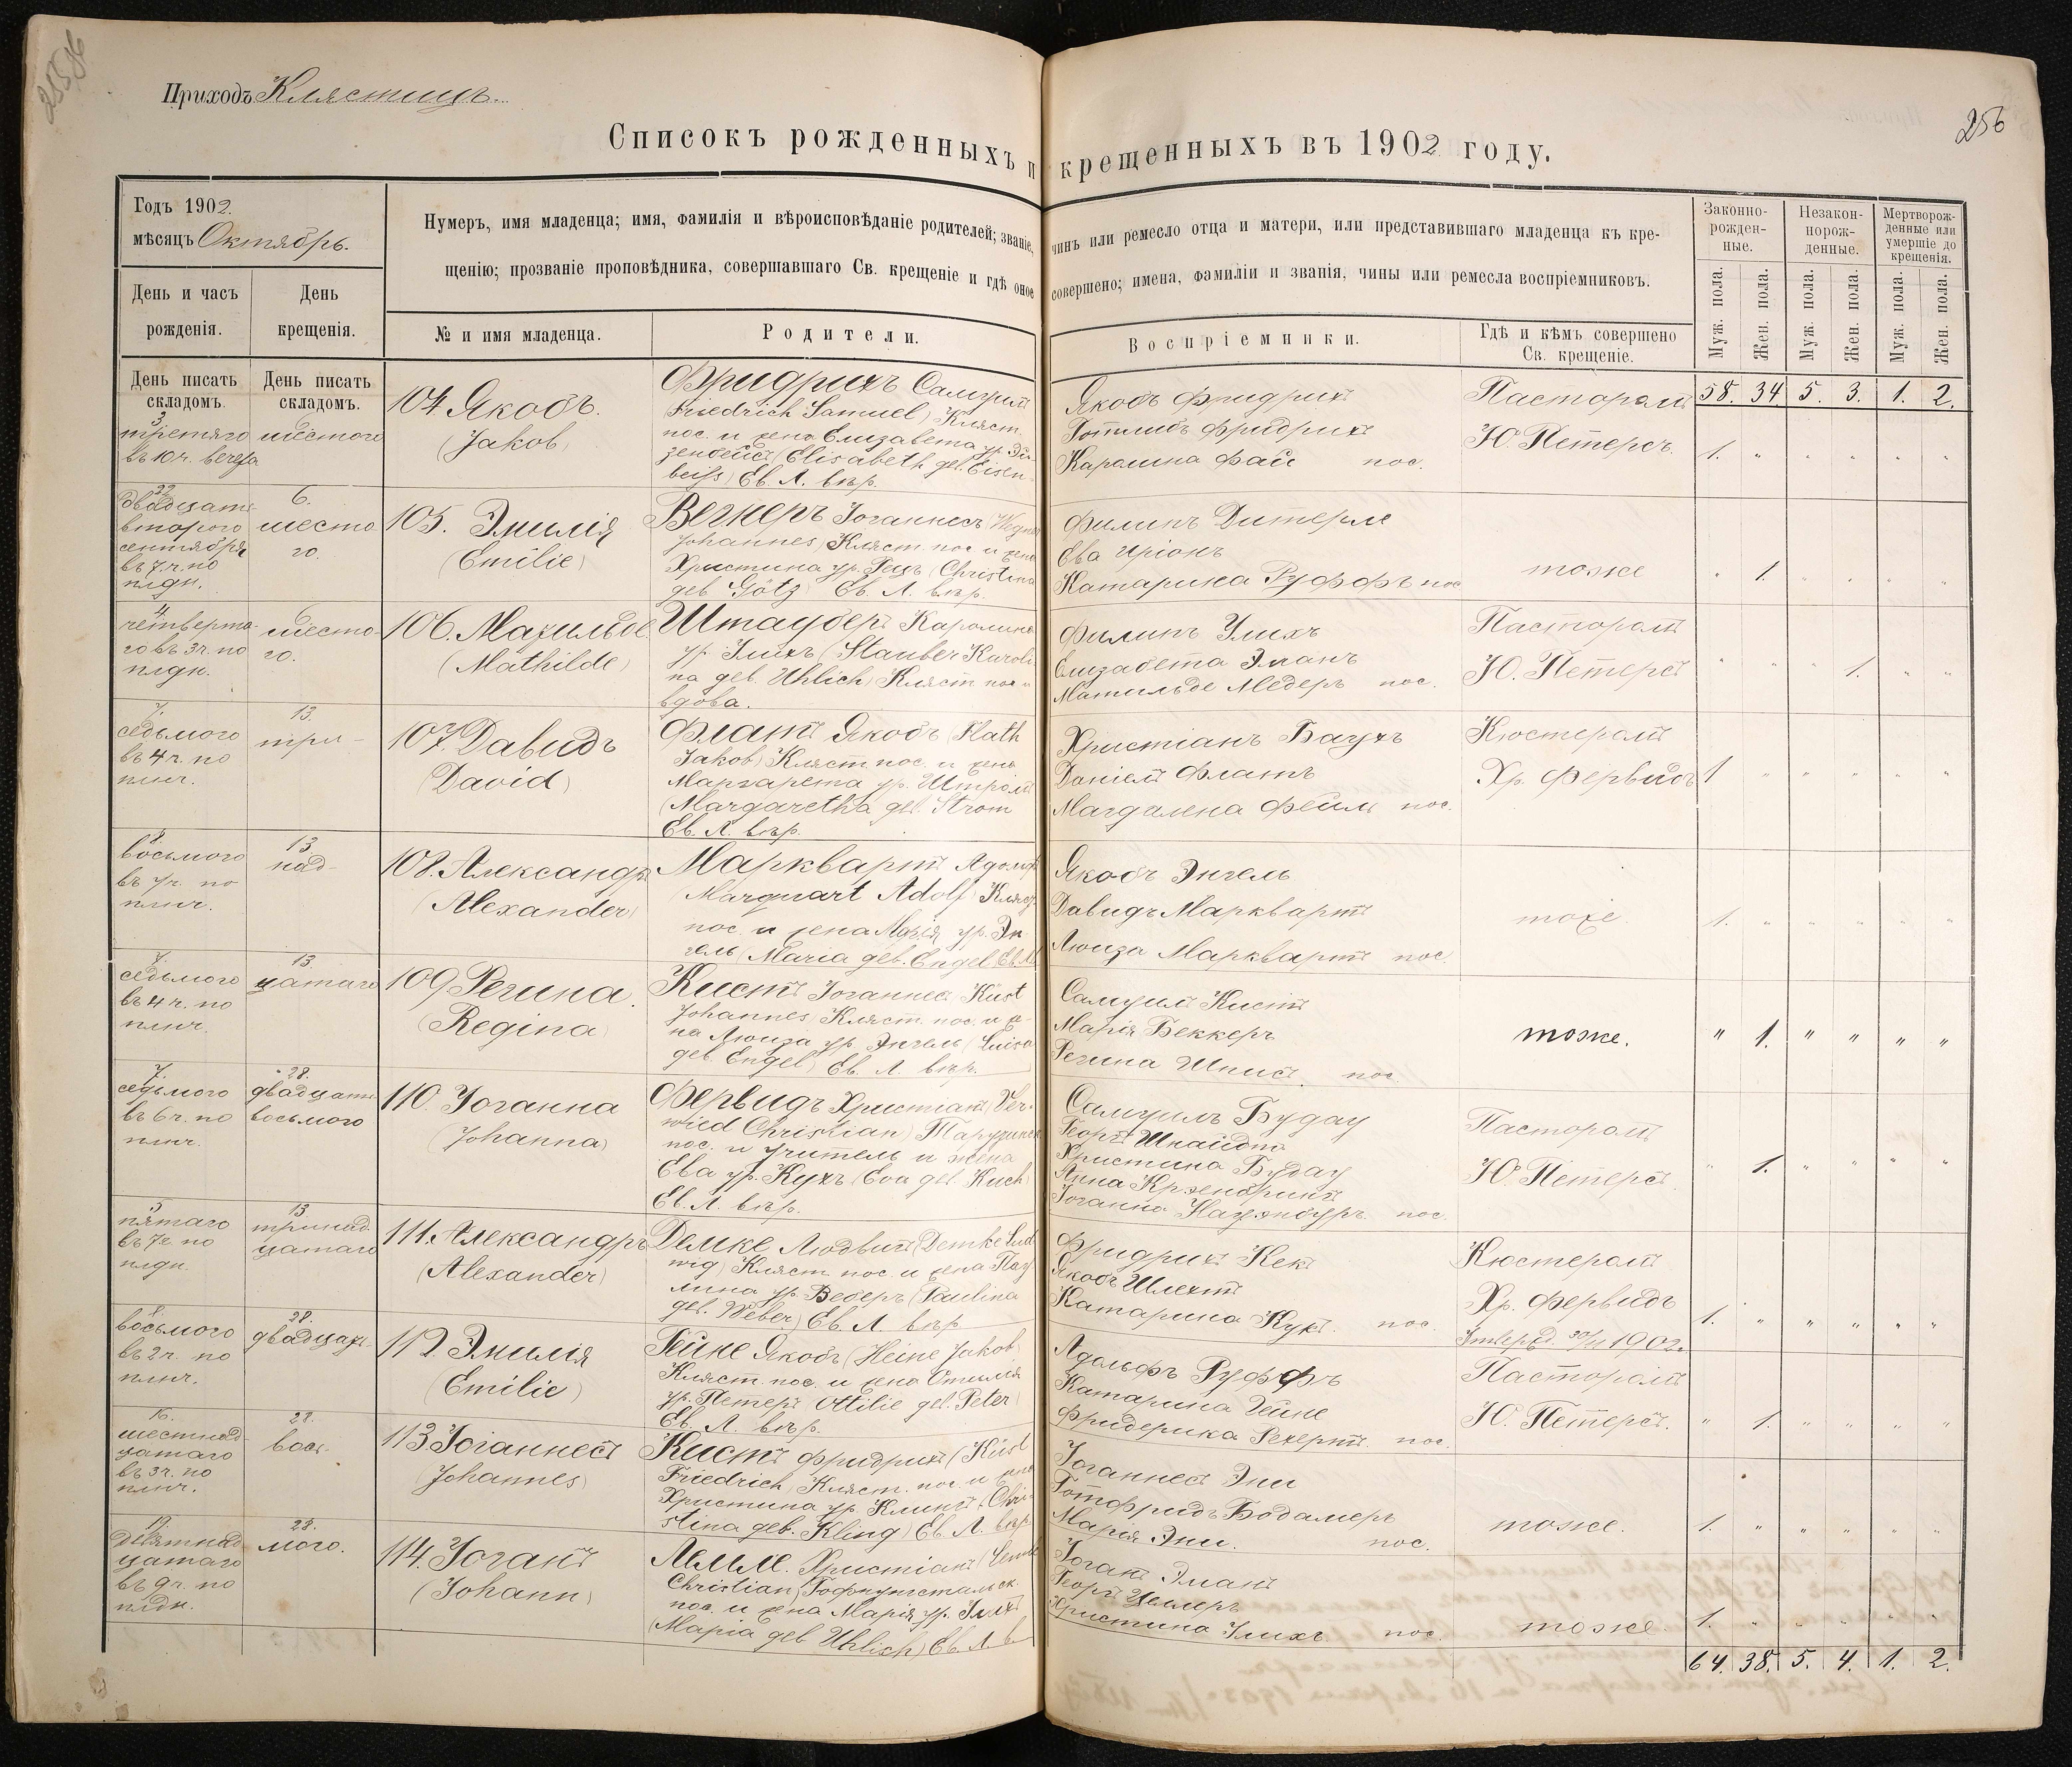 256
Приходъ Клястицъ.
Списокъ рожденныхъ и крещенныхъ въ 1902 году.
Годъ 1902.
мѣсяцъ Октябрь.
Нумеръ, имя младенца; имя, фамилія и вѣроисповѣданіе родителей; званіе, чинъ или ремесло отца и матери, или представившаго младенца къ кре-
щенію; прозваніе проповѣдника, совершавшаго Св. крещеніе и гдѣ оное совершено; имена, фамиліи и званія, чины или ремесла воспріемниковъ.
Законно-
рожден-
ные.
Незакон-
норож-
денные.
Мертворож-
денные или
умершіе до
крещенія.
День и часъ
рожденія.
День
крещенія.
№ и имя младенца.
Родители.
Воспріемники.
Гдѣ и кѣмъ совершено
Св. крещеніе.
Муж. пола.
Жен. пола.
Муж. пола.
Жен. пола.
Муж. пола.
Жен. пола.
День писать
складомъ.
День писать
складомъ.
58. 34 5. 3. 1. 2.
3
третяго
въ 10 ч. вечера
шестого
104. Якобъ.
(Jakob)
Фридрихъ Самуилъ
(Friedrich Samuel) Кляст.
пос. и жена Елизавета ур. Эй-
зенбейсъ (Elisabeth geb. Eisen-
beiss) Ев. Л. вѣр.
Якобъ Фридрихъ
Готлибъ Фридрихъ
Каролина Фай пос.
Пасторомъ
Ю. Петерсъ.
1. " " " " "
22
двадцать
второго
сентября
въ 7. ч. по
плдн.
6.
шесто
го.
105. Эмилія
(Emilie)
Вегнеръ Іоганнесъ (Wegner
Johannes) Кляст. пос. и жена
Христина ур. Гецъ (Christina
geb. Götz) Ев. Л. вѣр.
Филипъ Дитерле
Ева Иріонъ
Катарина Руффъ пос.
тоже
" 1. " " " "
4.
четверта-
го въ 3 ч. по
плдн.
6.
шесто-
го.
106. Матильде
(Mathilde)
Штауберъ Каролина
ур. Улихъ (Stauber Karoli-
na geb. Uhlich) Кляст. пос.
вдова.
Филипъ Улихъ
Елизабета Эманъ
Матильде Медеръ пос.
Пасторомъ
Ю. Петерсъ
" " " 1. " "
7.
седьмого
въ 4 ч. по
плнч.
13.
три-
107. Давидъ
(David)
Флатъ Якобъ (Flath
Jakob) Кляст. пос. и жена
Маргарета ур. Штромъ
(Margaretha geb. Strom
Ев. Л. вѣр.
Христіанъ Баухъ
Даніелъ Флатъ
Магдалена Фейль пос.
Кюстеромъ
Хр. Фервидъ
1 " " " " "
8.
восьмого
въ 7 ч. по
плнч.
13
над-
108. Александръ
(Alexander)
Марквартъ Адольфъ
(Marquart Adolf) Кляст.
пос. и жена Марія ур. Эн-
гель (Maria geb. Engel Ев. Л.
Якобъ Энгель
Давидъ Марквартъ
Люиза Марквартъ пос.
тоже.
1. " " " " "
7.
седьмого
въ 4 ч. по
плнч.
13
цатаго
109 Регина.
(Regina)
Кистъ Іоганнесъ (Küst
Johannes) Кляст. пос. и же-
на Люиза ур. Энгель (Luisa
geb. Engel) Ев. Л. вѣр.
Самуилъ Кистъ
Марія Беккеръ
Регина Шписъ. пос.
тоже.
" 1. " " " "
7.
седьмого
въ 6 ч. по
плнч.
28.
двадцать
восьмого
110. Іоганна
(Johanna)
Фервидъ Христіанъ (Ver-
wied Christian) Тарутинск.
пос. и учитель и жена
Ева ур. Кухъ (Eva geb. Kuch)
Ев. Л. вѣр.
Самуилъ Будау
Георгъ Шнайдтъ
Христина Будау
Анна
Іоганна пос.
Пасторомъ
Ю. Петерсъ.
" 1. " " " "
5
пятаго
въ 7 ч. по
плдн.
13
тринад
цатаго
111. Александръ
(Alexander)
Демке Людвигъ (Demke Lud
wig) Кляст. пос. и жена Пау
лина ур. Веберъ (Paulina
geb. Weber) Ев. Л. вѣр.
Фридрихъ Кекъ
Якобъ Шлехтъ
Катарина Кухъ. пос.
Кюстеромъ
Хр. Фервидъ
30/11 1902.
1. " " " " "
8.
восьмого
въ 2 ч. по
плнч.
28.
двадцать-
112. Эмилія
(Emilie)
Гейне Якобъ (Heine Jakob)
Кляст. пос. и жена Отилія
ур. Петеръ (Ottilie geb. Peter)
Ев. Л. вѣр.
Адольфъ Руффъ
Катарина Гейне
Фридерика Рехертъ пос.
Пасторомъ
Ю. Петерсъ.
" 1. " " " "
16.
шестнад-
цатаго
въ 3 ч. по
плнч.
28.
вось-
113. Іоганнесъ
(Johannes)
Кистъ Фридрихъ (Küst
Friedrich) Кляст. пос. и жена
Христина ур. Клингъ (Chri-
stina geb. Kling) Ев. Л. вѣр.
Іоганнесъ Эни
Готфридъ Бодамеръ
Марія Эни. пос.
тоже.
1. " " " " "
19.
девятнад
цатаго
въ 9 ч. по
плдн.
28.
мого.
114. Іоганъ
(Johann)
Лемле. Христіанъ (Lemle
Christian) Гофнунгстальск.
пос. и жена Марія ур. Улихъ
(Maria geb. Uhlich) Ев. Л. в
Іоганъ Эманъ
Георгъ Целлеръ
Христина Улихъ пос.
тоже.
1. " " " " "
64. 38. 5. 4. 1. 2.